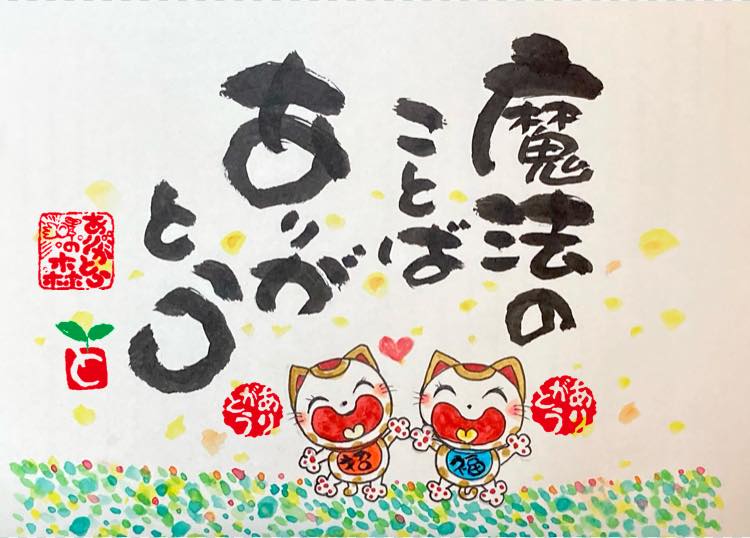 魔法の
ことば
ありが
とう
ありがとう
の森
と
ありがとう
ありがとう
招
福